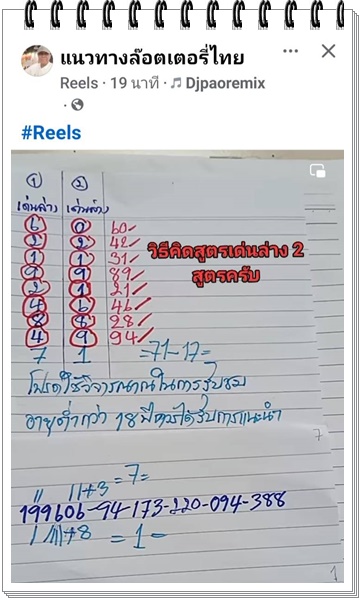 แนวทางล๊อตเตอรี่ไทย
Reels · 19 นาที · Djpaoremix
#Reels
① ②
เด่นล่าง เด่นล่าง
6 0 60
2 2 42
1 1 31
9 9 89
2 1 21
4 6 46
8 8 28
4 9 94
7 1 =71-17=
วิธีคิดสูตรเด่นล่าง 2
สูตรครับ
โปรดใช้วิจารณาณในการรับชม
อายุต่ำกว่า 18 ปีควรได้รับการแนะนำ
7
11+3 = 7 =
199606-94-173-220-094-388
+8 = 1 =
1